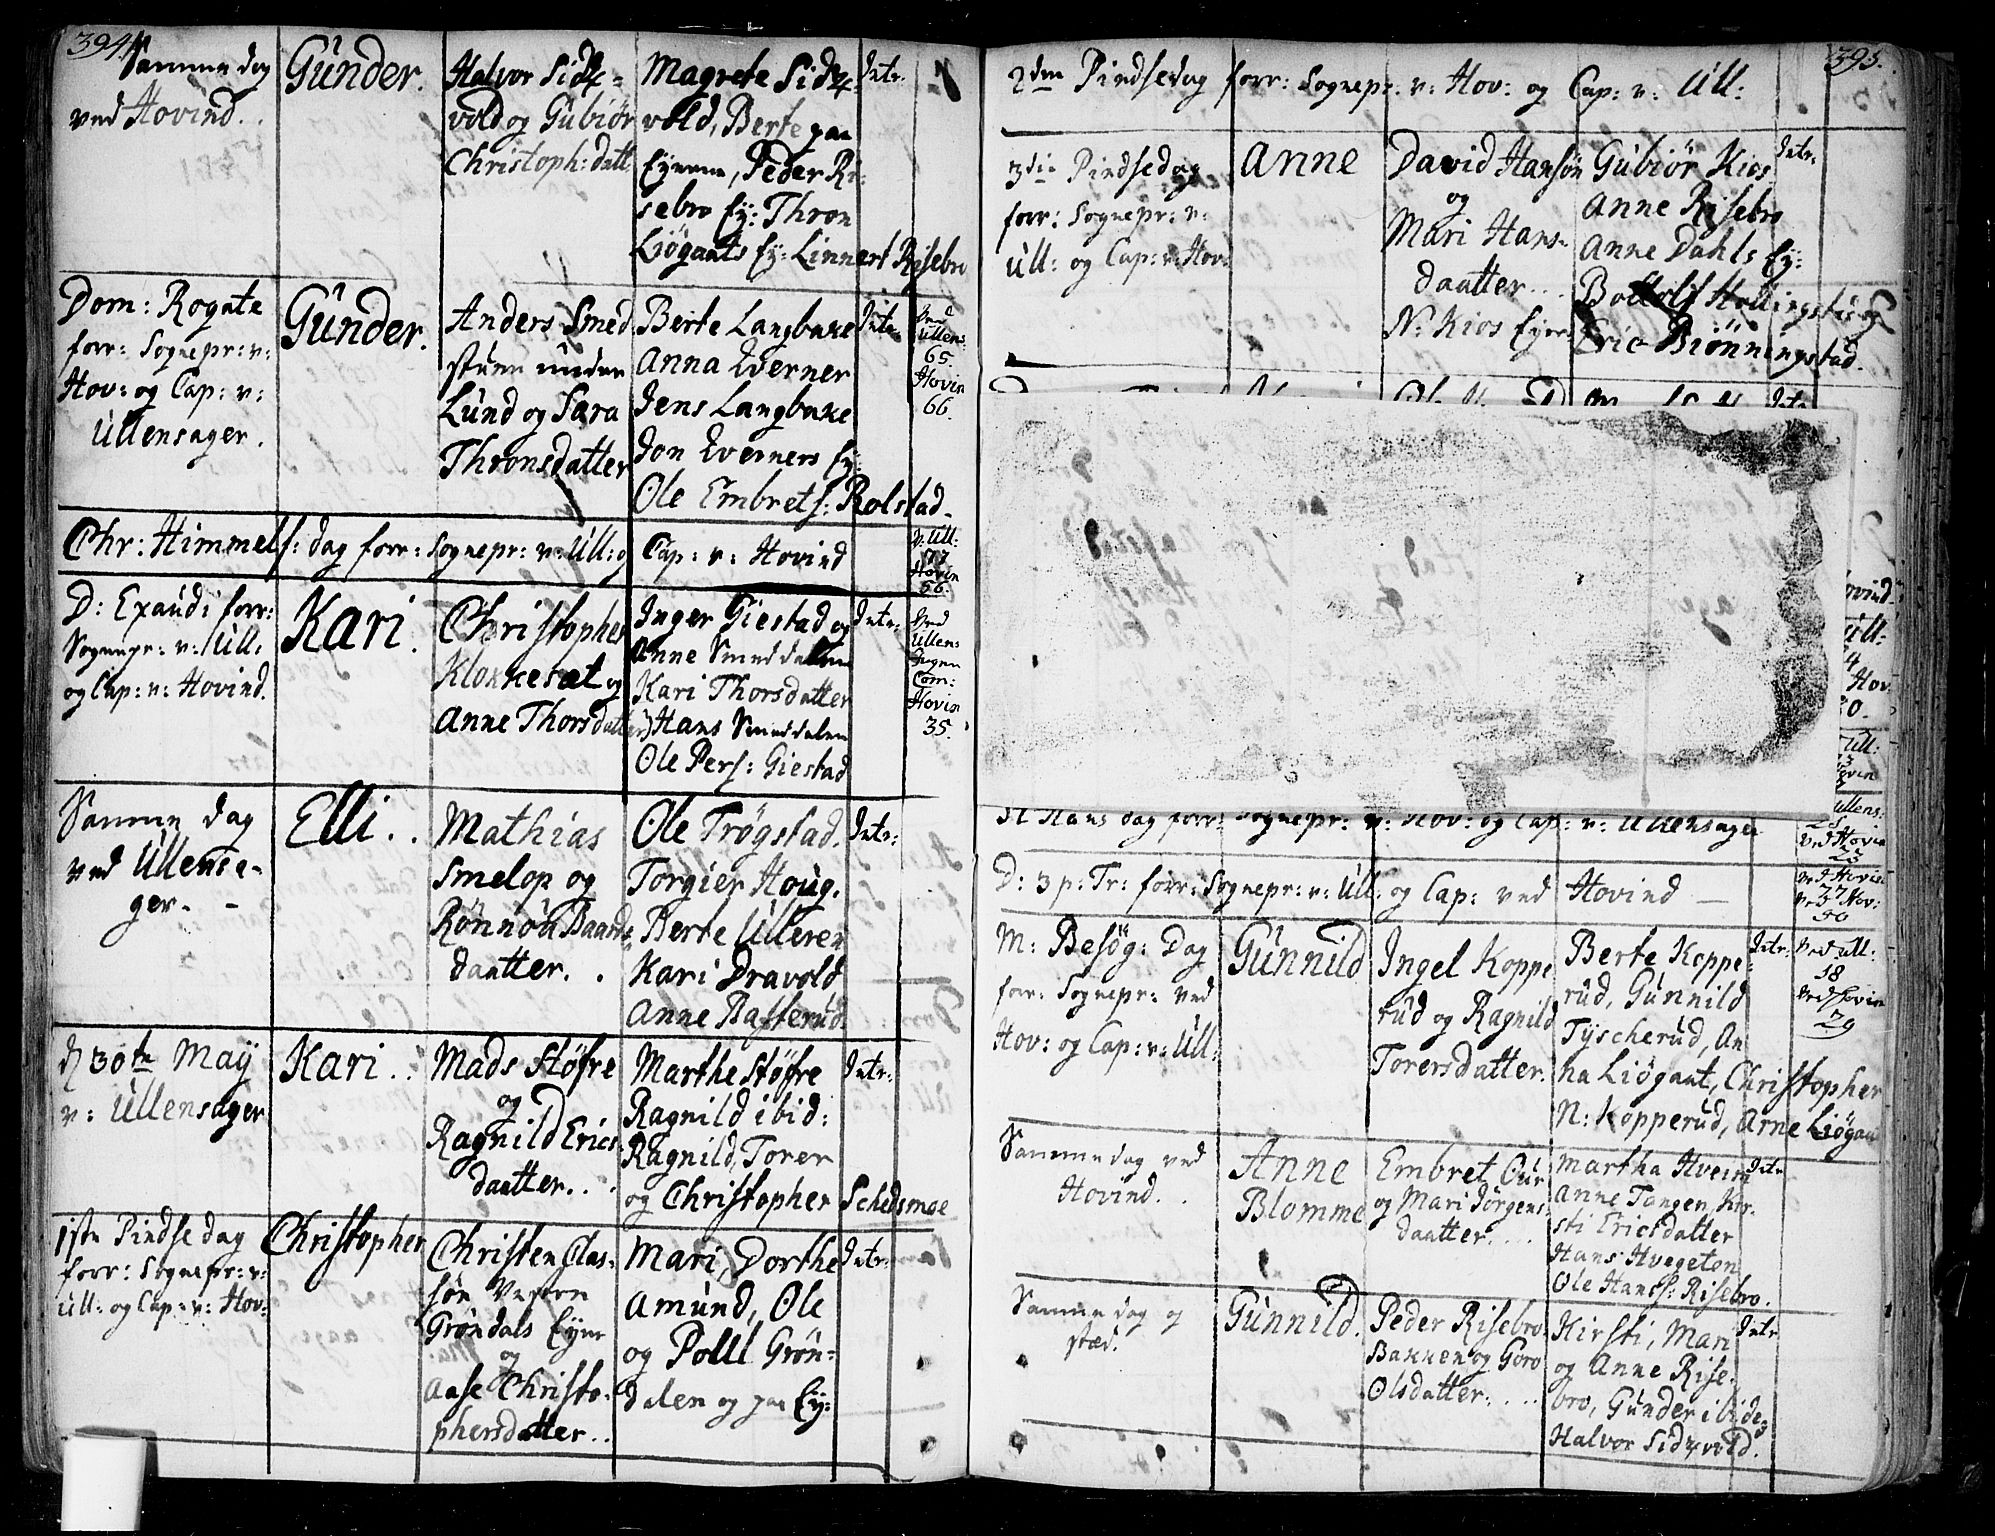 394.
Samme dag
ved Hovind.
Gunder.
Halvor Sidz-
vold og Gubiør
Christoph: datt
Magrete Sidz-
vold, Berte paa
Eyerne, Peder Ri-
sebro Ey: Thron
Liøgaats Ey: Linnert Risebro
Intr:
Dom: Rogate
forr: Sognepr: v:
Hov: og Cap: v:
Ullensager.
Gunder.
Anders Smed
stuen under
Lund og Sara
Thronsdatter
Berte Langbake
Anna Everner
Jens Langbake
Jon Everners Ey:
Ole Embretf: Rolstad
Intr:
Ved
Ullens:
65.
Hovin
66.
Chr: Himmelf: dag forr: Sognepr: v: Ull: og Cap: v: Hovind
v: Ull:
77
Hovin
56.
D: Exaudi forr:
Sognepr: v: Ull:
og Cap: v: Hovind.
Kari.
Christopher
Klokkesæt og
Anne Thorsdatter
Inger Giestad og
Anne Smeddalen
Kari Thorsdatter
Hans Smeddalen
Ole Perf: Giestad
Intr:
Ved
Ullens:
Ingen
Com:
Hovin
35.
Samme dag
ved Ullensa-
ger.
Elli.
Mathias
Smelop og
Rønnou Baards
daatter.
Ole Trøgstad.
Torgier Houg.
Berte Ulleren
Kari Dravold
Anne Rasterud.
Intr:
d 30te May
v: Ullensager
Kari.
Mads Støfre
og
Ragnild Erics
daatter.
Marthe Støfre
Ragnild ibid:
Ragnild, Torer
og Christopher Schedsmoe
Intr:
1ste Pindse dag
forr: Sognepr: v:
Ull: og Cap: v: Hov:
Christopher
Christen Clas-
søn Vestre
Grøndals Eyer
og
Aase Christo-
phersdatter.
Mari, Dorthe
Amund, Ole
og Poul Grøn-
dalen og paa Ey:
Intr:
395.
2den Pindsedag forr: Sognepr: v: Hov: og Cap: v: Ull:
3die Pindsedag
forr: Sognepr: v:
Ull: og Cap: v: Hov:
Anne
David Hansøn
og
Mari Hans-
daatter.
N: Kios Eyer
Gubiør Kios
Anne Risebro
Anne Dahls Ey:
Bottolf Hellingstad og
Eric Biønningstad.
Intr:
St Hans dag forr: Sognepr: v: Hov: og Cap: v: Ullensager
Ullens:
Ved Hovin
23
D: 3 p: Tr: forr: Sognepr: v: Ull: og Cap: ved Hovind
M: Besøg: Dag
forr: Sognepr: ved
Hov: og Cap: v: Ull:
Gunnild
Ingel Koppe
rud og Ragnild
Torersdatter.
Berte Koppe-
rud, Gunnild
Tyscherud, An
na Liøgaat, Christopher
N: Kopperud, Arne Liøgaat
Intr:
Ved Ull:
18
Ved Hovin
29
Samme dag ved
Hovind.
Anne
Blomme
Embret Our
og Mari Jørgens
daatter.
Martha Hvein
Anne Tangen, Kir-
sti Ericsdatter
Hans Hvegeton
Ole Hansf: Risebro.
Intr
Samme dag og
stæd.
Gunnild.
Peder Risebro
Bakken og Goro
Olsdatter.
Kirsti, Mari
og Anne Rise-
bro, Gunder ibid:
Halvor Sidzvold.
Intr